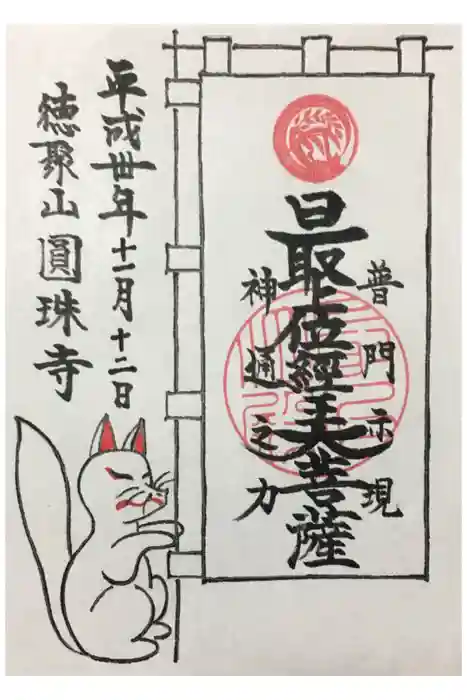 普門示現
最上位經王大菩薩
神通之力
平成丗年十一月十二日
徳聚山圓珠寺